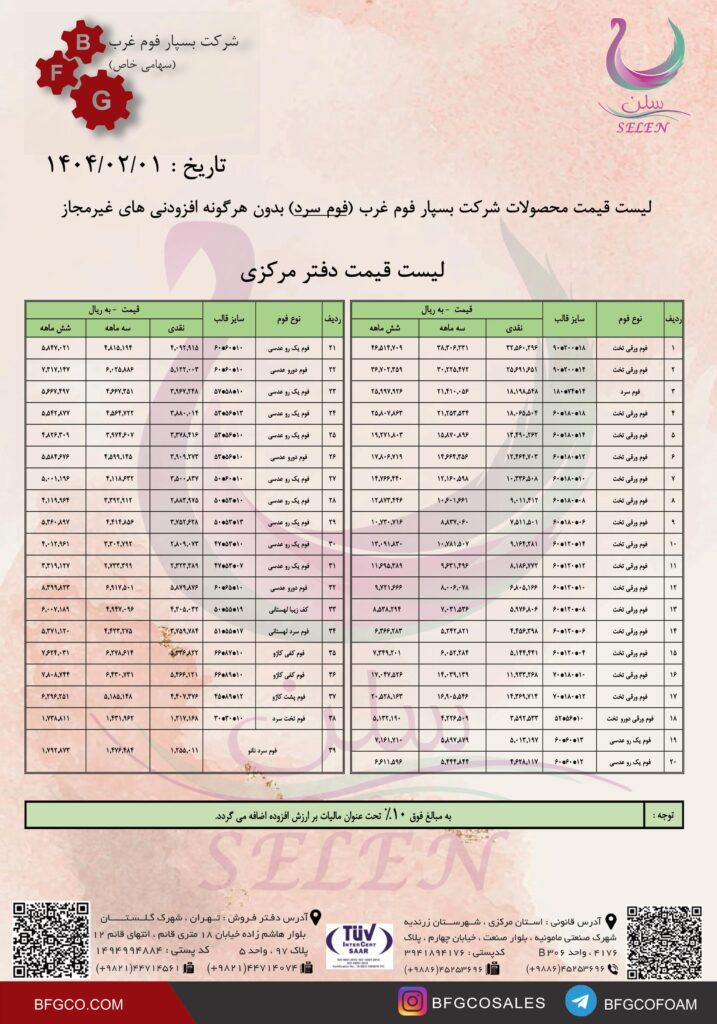 شرکت بسپار فوم غرب
(سهامی خاص)
B
F
G
سلن
SELEN
تاریخ : ۱۴۰۴/۰۲/۰۱
لیست قیمت محصولات شرکت بسپار فوم غرب (فوم سرد) بدون هرگونه افزودنی های غیرمجاز
لیست قیمت دفتر مرکزی
ردیف نوع فوم سایز قالب قیمت - به ریال
نقدی سه ماهه شش ماهه
۱ فوم ورقی تخت ۹۰*۲۰۰*۱۸ ۳۲,۵۶۰,۲۹۶ ۳۸,۳۰۶,۲۳۱ ۴۶,۵۱۴,۷۰۹
۲ فوم ورقی تخت ۹۰*۲۰۰*۱۴ ۲۵,۶۹۱,۶۵۱ ۳۰,۲۲۵,۴۷۲ ۳۶,۷۰۲,۳۵۹
۳ فوم سرد ۱۸۰*۷۴*۱۴ ۱۸,۱۹۸,۵۴۸ ۲۱,۴۱۰,۰۵۶ ۲۵,۹۹۷,۹۲۶
۴ فوم ورقی تخت ۶۰*۱۸۰*۱۸ ۱۸,۰۶۵,۵۰۴ ۲۱,۲۵۳,۵۳۴ ۲۵,۸۰۷,۸۶۳
۵ فوم ورقی تخت ۶۰*۱۸۰*۱۴ ۱۳,۴۹۰,۲۶۲ ۱۵,۸۷۰,۸۹۶ ۱۹,۲۷۱,۸۰۳
۶ فوم ورقی تخت ۶۰*۱۸۰*۱۲ ۱۲,۴۶۴,۷۰۳ ۱۴,۶۶۴,۳۵۶ ۱۷,۸۰۶,۷۱۹
۷ فوم ورقی تخت ۶۰*۱۸۰*۱۰ ۱۰,۳۳۶,۵۰۸ ۱۲,۱۶۰,۵۹۸ ۱۴,۷۶۶,۴۴۰
۸ فوم ورقی تخت ۶۰*۱۸۰*۰۸ ۹,۰۱۱,۴۱۲ ۱۰,۶۰۱,۶۶۱ ۱۲,۸۷۳,۴۴۶
۹ فوم ورقی تخت ۶۰*۱۸۰*۰۶ ۷,۵۱۱,۵۰۱ ۸,۸۳۷,۰۶۰ ۱۰,۷۳۰,۷۱۶
۱۰ فوم ورقی تخت ۶۰*۱۲۰*۱۴ ۹,۱۶۴,۲۸۱ ۱۰,۷۸۱,۵۰۷ ۱۳,۰۹۱,۸۳۰
۱۱ فوم ورقی تخت ۶۰*۱۲۰*۱۲ ۸,۱۸۶,۷۷۲ ۹,۶۳۱,۴۹۶ ۱۱,۶۹۵,۳۸۹
۱۲ فوم ورقی تخت ۶۰*۱۲۰*۱۰ ۶,۸۰۵,۱۶۶ ۸,۰۰۶,۰۷۸ ۹,۷۲۱,۶۶۶
۱۳ فوم ورقی تخت ۶۰*۱۲۰*۰۸ ۵,۹۷۶,۸۰۶ ۷,۰۳۱,۵۳۶ ۸,۵۳۸,۲۹۴
۱۴ فوم ورقی تخت ۶۰*۱۲۰*۰۶ ۴,۴۵۶,۳۹۸ ۵,۲۴۲,۸۲۱ ۶,۳۶۶,۲۸۳
۱۵ فوم ورقی تخت ۶۰*۱۲۰*۰۴ ۵,۱۴۴,۴۴۱ ۶,۰۵۲,۲۸۴ ۷,۳۴۹,۲۰۱
۱۶ فوم ورقی تخت ۷۰*۱۸۰*۱۰ ۱۱,۹۳۳,۲۶۸ ۱۴,۰۳۹,۱۳۹ ۱۷,۰۴۷,۵۲۶
۱۷ فوم ورقی تخت ۷۰*۱۸۰*۱۲ ۱۴,۳۶۹,۷۱۴ ۱۶,۹۰۵,۵۴۶ ۲۰,۵۲۸,۱۶۳
۱۸ فوم ورقی دورو تخت ۵۲*۵۶*۱۰ ۳,۵۹۲,۵۳۳ ۴,۲۲۶,۵۰۹ ۵,۱۳۲,۱۹۰
۱۹ فوم یک رو عدسی ۶۰*۶۰*۱۳ ۵,۰۱۳,۱۹۷ ۵,۸۹۷,۸۷۹ ۷,۱۶۱,۷۱۰
۲۰ فوم یک رو عدسی ۶۰*۶۰*۱۲ ۴,۶۲۸,۱۱۷ ۵,۴۴۴,۸۴۴ ۶,۶۱۱,۵۹۶
ردیف نوع فوم سایز قالب قیمت - به ریال
نقدی سه ماهه شش ماهه
۲۱ فوم یک رو عدسی ۶۰*۶۰*۱۰ ۴,۰۹۲,۹۱۵ ۴,۸۱۵,۱۹۴ ۵,۸۴۷,۰۲۱
۲۲ فوم دورو عدسی ۶۰*۶۰*۱۰ ۵,۱۲۲,۰۰۳ ۶,۰۲۵,۸۸۶ ۷,۳۱۷,۱۴۷
۲۳ فوم یک رو عدسی ۵۷*۵۸*۱۰ ۳,۹۶۷,۲۴۸ ۴,۶۶۷,۳۵۱ ۵,۶۶۷,۴۹۷
۲۴ فوم یک رو عدسی ۵۳*۵۶*۱۳ ۳,۸۸۰,۰۱۴ ۴,۵۶۴,۷۲۲ ۵,۵۴۲,۸۷۷
۲۵ فوم یک رو عدسی ۵۳*۵۶*۱۰ ۳,۳۷۸,۴۱۶ ۳,۹۷۴,۶۰۷ ۴,۸۲۶,۳۰۹
۲۶ فوم دورو عدسی ۵۳*۵۶*۱۰ ۳,۹۰۹,۲۷۳ ۴,۵۹۹,۱۴۵ ۵,۵۸۴,۶۷۶
۲۷ فوم یک رو عدسی ۵۰*۶۰*۱۰ ۳,۵۰۰,۸۳۷ ۴,۱۱۸,۶۳۲ ۵,۰۰۱,۱۹۶
۲۸ فوم یک رو عدسی ۵۰*۵۳*۱۰ ۲,۸۸۳,۹۷۵ ۳,۳۹۲,۹۱۲ ۴,۱۱۹,۹۶۴
۲۹ فوم یک رو عدسی ۵۰*۵۳*۱۳ ۳,۷۵۲,۶۲۸ ۴,۴۱۴,۸۵۶ ۵,۳۶۰,۸۹۷
۳۰ فوم یک رو عدسی ۴۷*۵۳*۱۰ ۲,۸۰۹,۰۷۳ ۳,۳۰۴,۷۹۲ ۴,۰۱۲,۹۶۱
۳۱ فوم یک رو عدسی ۴۷*۵۳*۰۷ ۲,۳۲۳,۳۸۹ ۲,۷۳۳,۳۹۹ ۳,۳۱۹,۱۲۷
۳۲ فوم دورو عدسی ۶۰*۶۵*۱۰ ۵,۸۷۹,۸۷۶ ۶,۹۱۷,۵۰۱ ۸,۳۹۹,۸۲۳
۳۳ کف زیبا لهستانی ۵۰*۵۵*۱۹ ۴,۲۰۵,۰۳۲ ۴,۹۴۷,۰۹۶ ۶,۰۰۷,۱۸۹
۳۴ فوم سرد لهستانی ۵۱*۵۵*۱۷ ۳,۷۵۹,۷۸۴ ۴,۴۲۳,۲۷۵ ۵,۳۷۱,۱۲۰
۳۵ فوم کفی کاژو ۶۶*۸۷*۱۰ ۵,۳۳۶,۸۲۲ ۶,۲۷۸,۶۱۴ ۷,۶۲۴,۰۳۱
۳۶ فوم کفی کاژو ۶۶*۸۹*۱۰ ۵,۴۶۶,۱۲۱ ۶,۴۳۰,۷۳۱ ۷,۸۰۸,۷۴۴
۳۷ فوم پشت کاژو ۴۵*۸۹*۱۲ ۴,۴۰۷,۳۷۶ ۵,۱۸۵,۱۴۸ ۶,۲۹۶,۲۵۱
۳۸ فوم تخت سرد ۳۰*۳۰*۱۰ ۱,۲۱۷,۱۶۸ ۱,۴۳۱,۹۶۲ ۱,۷۳۸,۸۱۱
۳۹ فوم سرد نانو ۱,۲۵۵,۰۱۱ ۱,۴۷۶,۴۸۴ ۱,۷۹۲,۸۷۳
توجه : به مبالغ فوق ۱۰٪ تحت عنوان مالیات بر ارزش افزوده اضافه می گردد.
سلن
SELEN
آدرس قانونی : استان مرکزی ، شهرستان زرندیه
شهرک صنعتی مامونیه ، بلوار صنعت ، خیابان چهارم ، پلاک
۴۱۷۶ ، واحد B ۳۰۶ کدپستی : ۳۹۴۱۸۹۴۱۷۶
(+۹۸۸۶)۴۵۲۵۳۶۹۶ (+۹۸۸۶)۴۵۲۵۳۶۹۶
TÜV
INTERCERT
SAAR
آدرس دفتر فروش : تهران ، شهرک گلستان
بلوار هاشم زاده خیابان ۱۸ متری قائم ، انتهای قائم ۱۲
پلاک ۹۷ ، واحد ۵ کد پستی : ۱۴۹۴۹۹۴۸۸۴
(+۹۸۲۱)۴۴۷۱۴۰۷۴ (+۹۸۲۱)۴۴۷۱۴۵۶۱
BFGCO.COM BFGCOSALES BFGCOFOAM